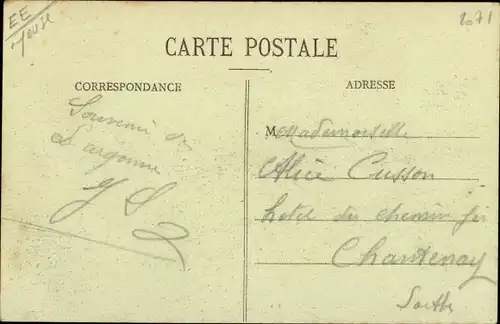 EE
Meuse
2071
CARTE POSTALE
CORRESPONDANCE
ADRESSE
Souvenir de
L'argonne
M Mademoiselle
Alice Cusson
hotel du chemin fer
Chantenay
Sarthe